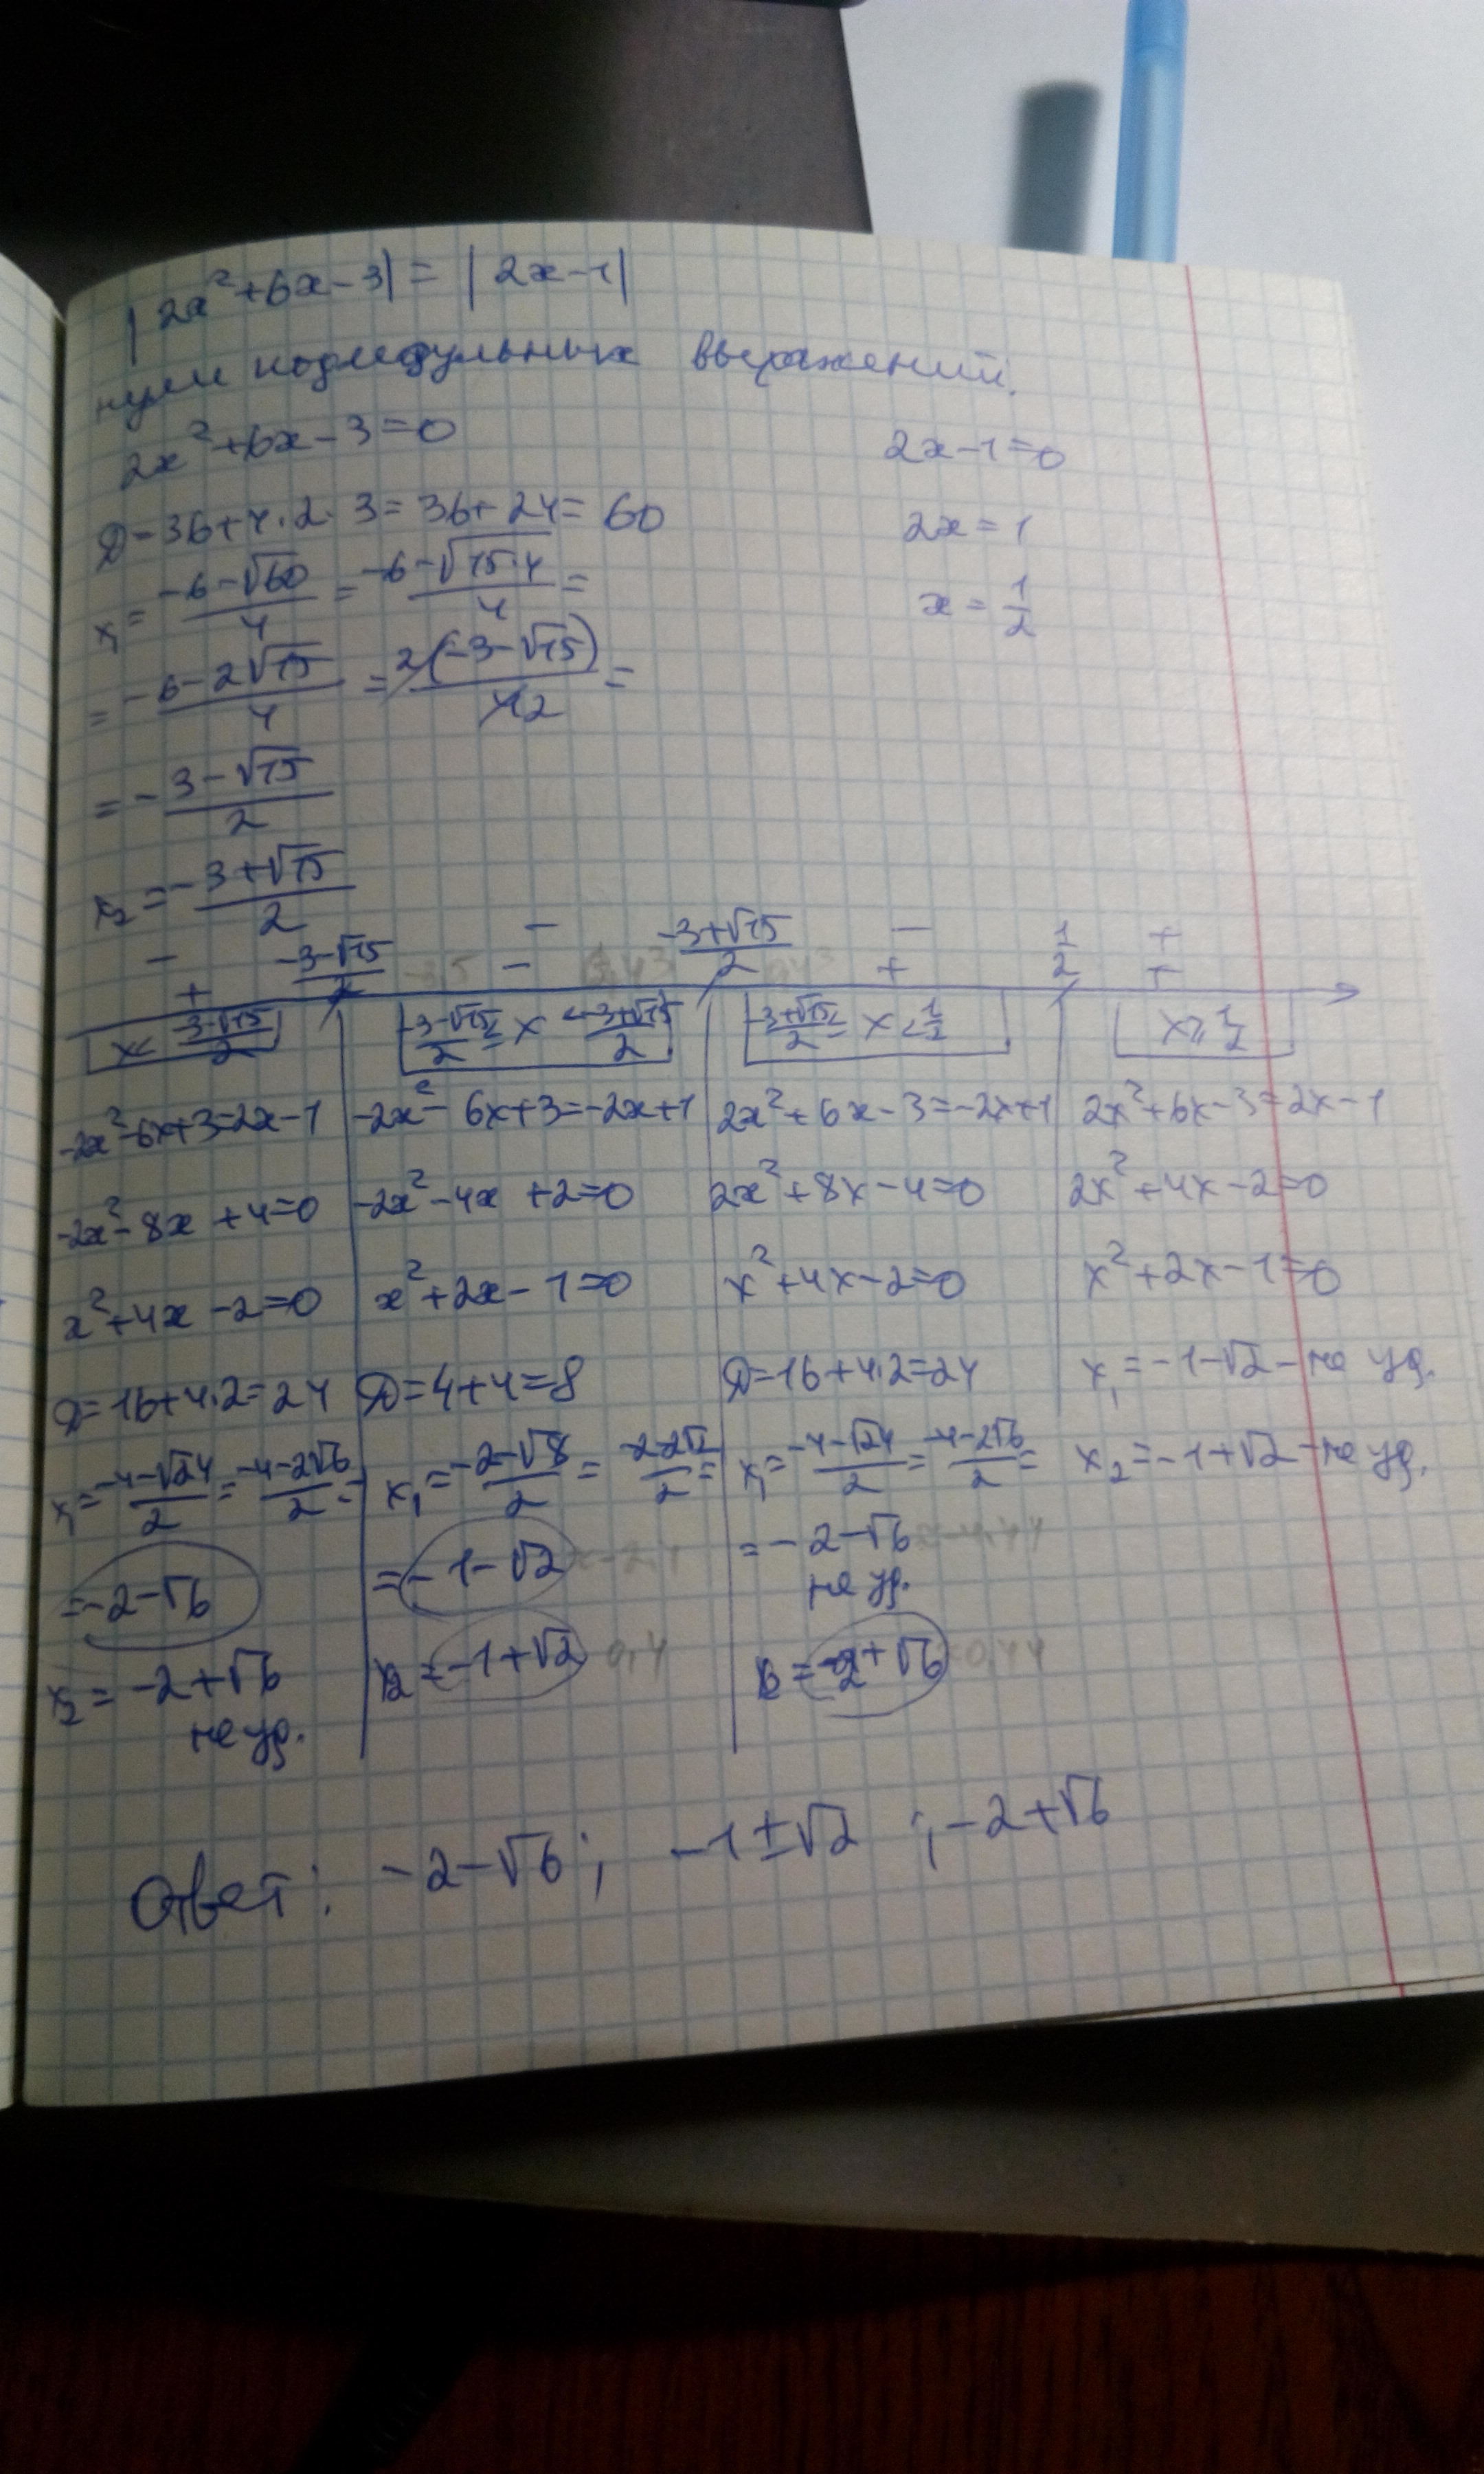 |2x²+6x-3| = |2x-1|
нули подмодульных выражений.
2x²+6x-3=0
2x-1=0
D=36+4·2·3=36+24=60
2x=1
x₁ = (-6-√60)/4 = (-6-√(15·4))/4 =
x = 1/2
= (-6-2√15)/4 = 2(-3-√15)/42 =
= -(3-√15)/2
x₂ = -(3+√15)/2
- - - +
+ - + +
(-3-√15)/2 (-3+√15)/2 1/2
x < (-3-√15)/2
(-3-√15)/2 ≤ x < (-3+√15)/2
(-3+√15)/2 ≤ x < 1/2
x ⩾ 1/2
-2x²-6x+3=2x-1
-2x²-8x+4=0
x²+4x-2=0
D=16+4·2=24
x₁ = (-4-√24)/2 = (-4-2√6)/2 =
= -2-√6
x₂ = -2+√6
не уд.
-2x²-6x+3=-2x+1
-2x²-4x+2=0
x²+2x-1=0
D=4+4=8
x₁ = (-2-√8)/2 = (-2-2√2)/2 =
= -1-√2
x₂ = -1+√2 0,4
2x²+6x-3=-2x+1
2x²+8x-4=0
x²+4x-2=0
D=16+4·2=24
x₁ = (-4-√24)/2 = (-4-2√6)/2 =
= -2-√6 ≈-4,44
не уд.
x₂ = -2+√6 0,44
2x²+6x-3=2x-1
2x²+4x-2=0
x²+2x-1=0
x₁ = -1-√2 - не уд.
x₂ = -1+√2 - не уд.
Ответ: -2-√6; -1±√2 ; -2+√6